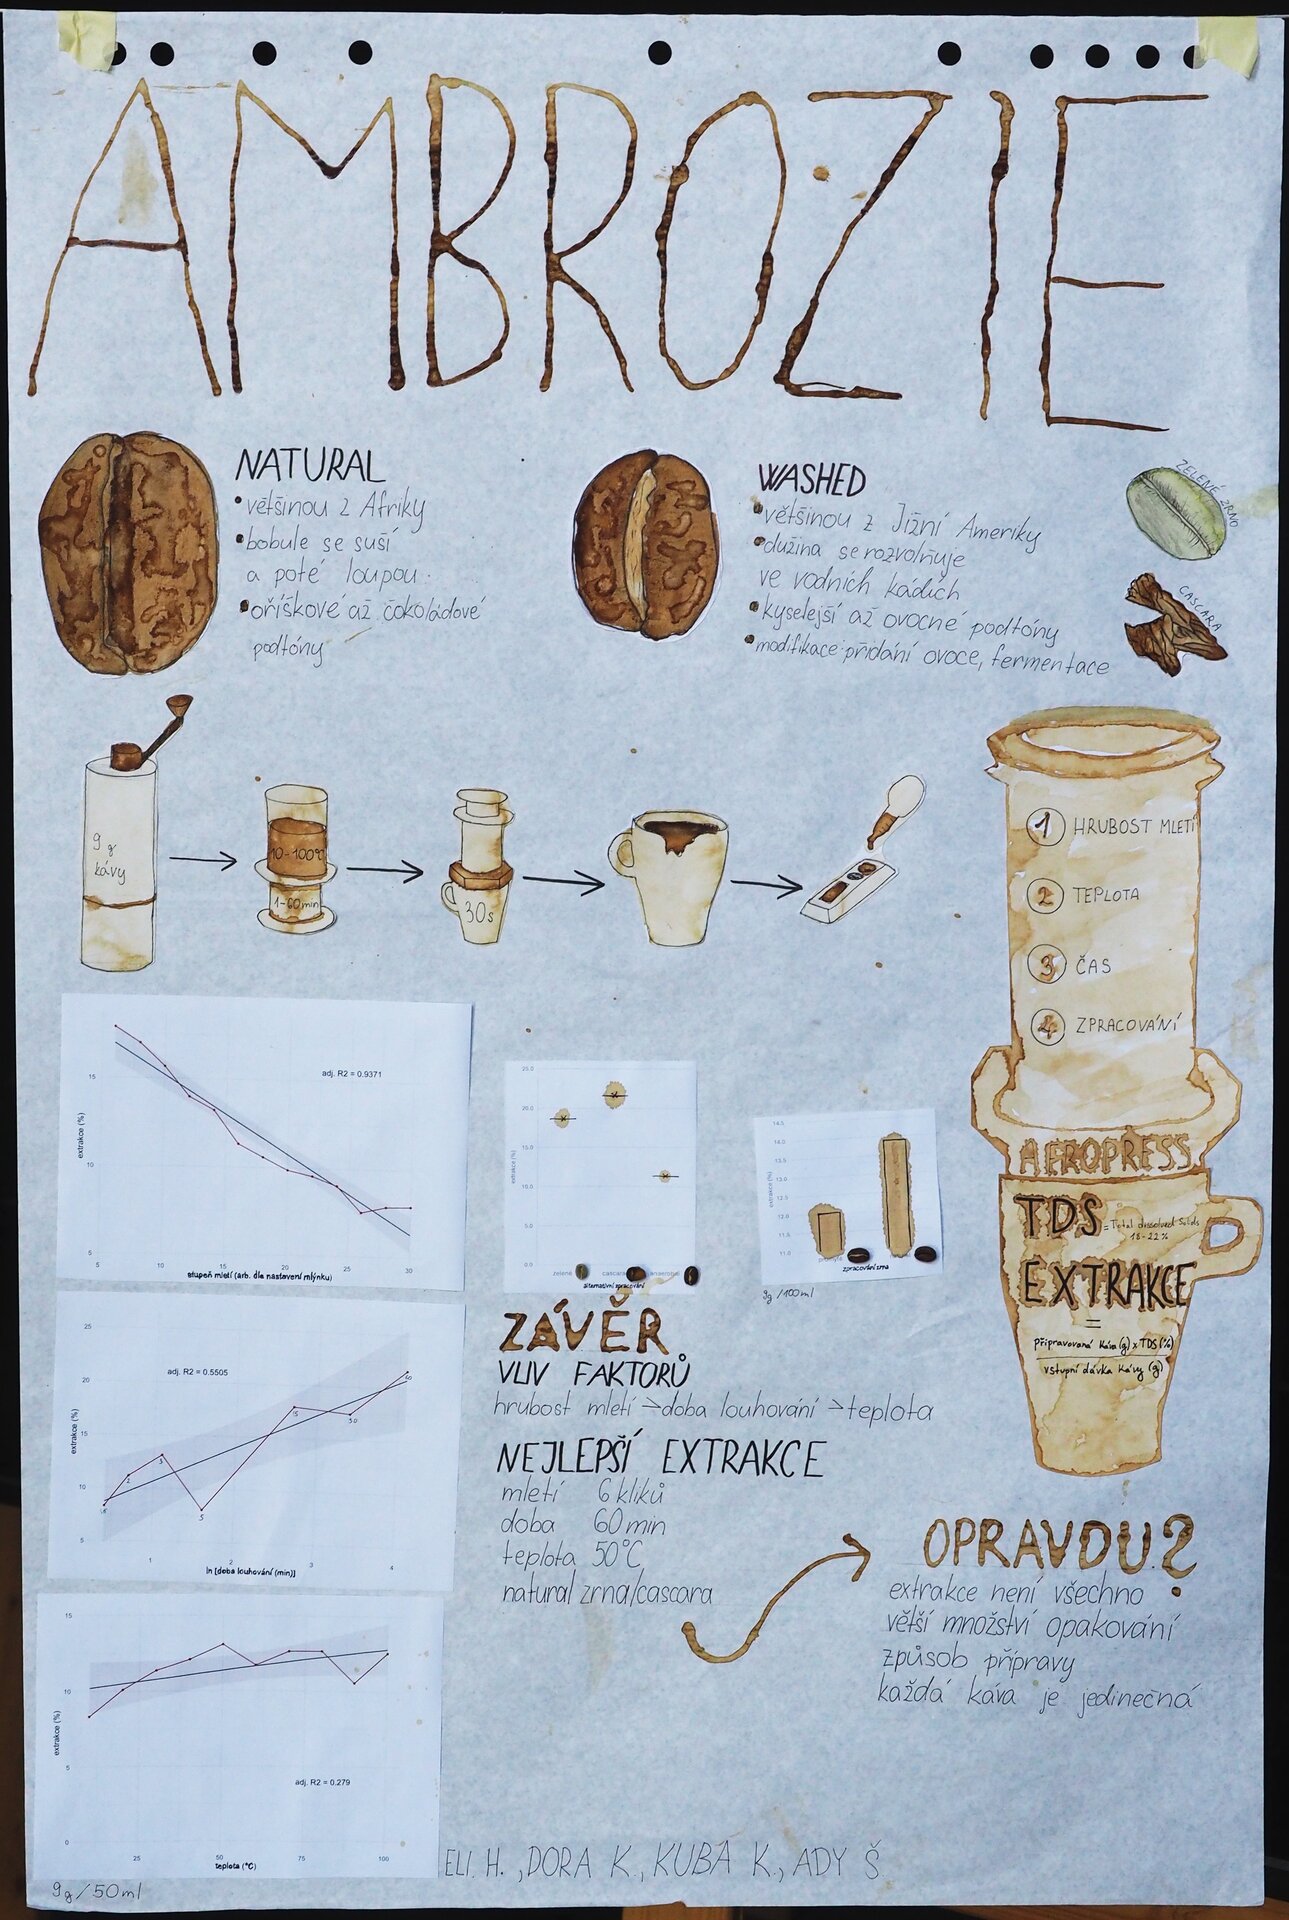 AMBROZIE
NATURAL
•většinou z Afriky
•bobule se suší
a poté loupou
•oříškové až čokoládové
podtóny
WASHED
•většinou z Jižní Ameriky
•dužina se rozvolňuje
ve vodních kádích
•kyselejší až ovocné podtóny
•modifikace: přidání ovoce, fermentace
ZELENÉ ZRNO
CASCARA
9 g
kávy
10-100°C
1-60min
30s
1 HRUBOST MLETÍ
2 TEPLOTA
3 ČAS
4 ZPRACOVÁNÍ
AEROPRESS
TDS = Total dissolved Solids
18-22%
EXTRAKCE
=
připravovaná káva (g) x TDS (%)
vstupní dávka kávy (g)
adj. R2 = 0.9371
extrakce (%)
15
10
5
5 10 15 20 25 30
stupeň mletí (arb. dle nastavení mlýnku)
25.0
20.0
15.0
10.0
5.0
0.0
extrakce (%)
zelené cascara anaerobní
alternativní zpracování
14.5
14.0
13.5
13.0
12.5
12.0
11.5
11.0
extrakce (%)
zpracování zrna
9g/100ml
adj. R2 = 0.5505
extrakce (%)
25
20
15
10
5
2
3
5
15
30
60
1 2 3 4
ln [doba louhování (min)]
15
10
5
0
extrakce (%)
adj. R2 = 0.279
25 50 75 100
teplota (°C)
9g/50ml
ZÁVĚR
VLIV FAKTORŮ
hrubost mletí > doba louhování > teplota
NEJLEPŠÍ EXTRAKCE
mletí 6 kliků
doba 60 min
teplota 50°C
natural zrna/cascara
OPRAVDU?
extrakce není všechno
větší množství opakování
způsob přípravy
každá káva je jedinečná
ELI. H., DORA K., KUBA K., ADY Š.